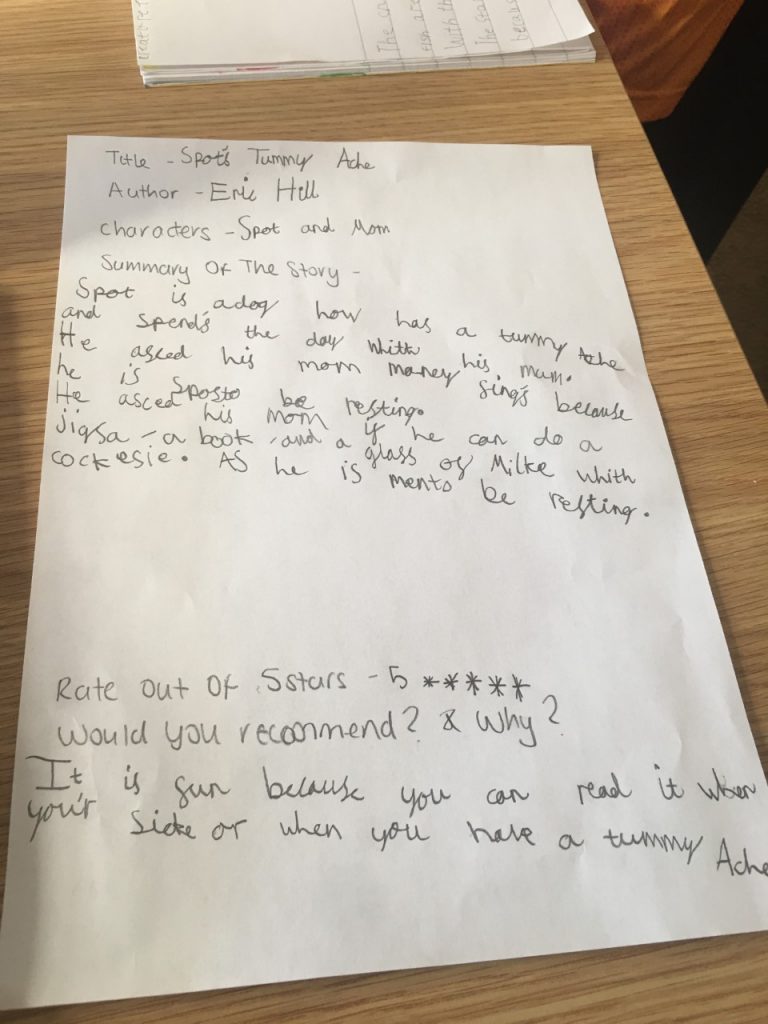 The ca
fish are
With the
The sta
because
Title - Spot's Tummy Ache
Author - Eric Hill
Characters - Spot and Mom
Summary Of The Story -
Spot is adog how has a tummy Ache
and spend's the day whith his mum.
He asked his mom maney sing's because
he is Sposto be resting.
He asced his mom if he can do a
jigsa - a book - and a glass of Milke whith
cockesie. As he is mento be resting.
Rate out Of 5stars - 5 *****
Would you recommend? & Why?
It is fun because you can read it when
you'r Sicke or when you have a tummy Ache